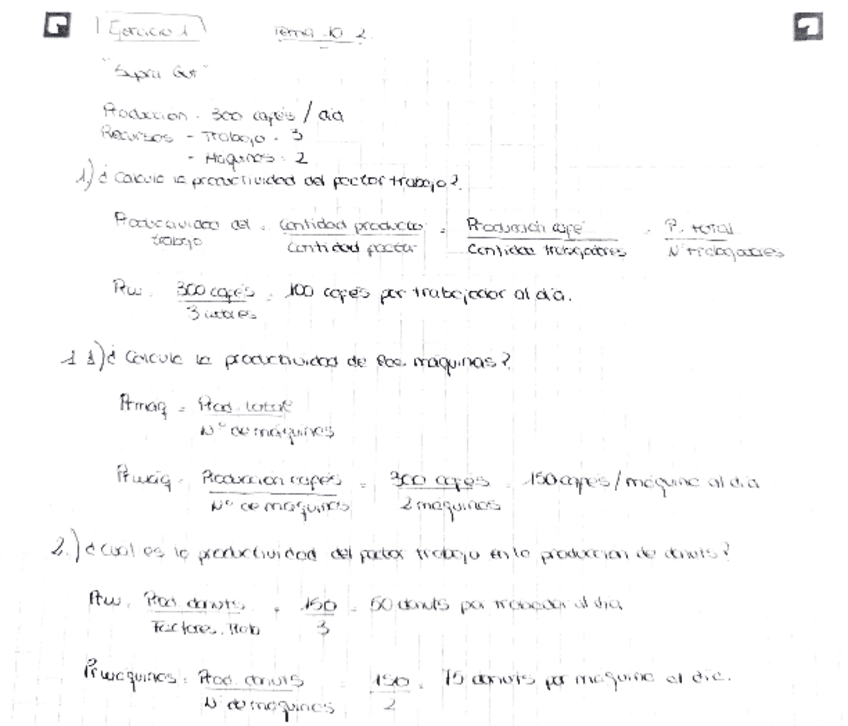 Ejercicio 1 Tema 10.2
"Supra Gut"
Producción = 300 cafés / día
Recursos - Trabajo = 3
- Máquinas = 2
1) ¿Calcule la productividad del factor trabajo?
Productividad del trabajo = Cantidad producto / Cantidad factor = Producción café / Cantidad trabajadores = P. total / Nº trabajadores
Prw = 300 cafés / 3 = 100 cafés por trabajador al día.
1.1) ¿Calcule la productividad de las máquinas?
Prmaq = Prod. total / Nº de máquinas
Prmáq = Producción cafés / Nº de máquinas = 300 cafés / 2 máquinas = 150 cafés / máquina al día
2.) ¿Cuál es la productividad del factor trabajo en la producción de donuts?
Prw = Prod. donuts / Factores. Trab = 150 / 3 = 50 donuts por trabajador al día
Prmáquinas = Prod. donuts / Nº de máquinas = 150 / 2 = 75 donuts por máquina al día.